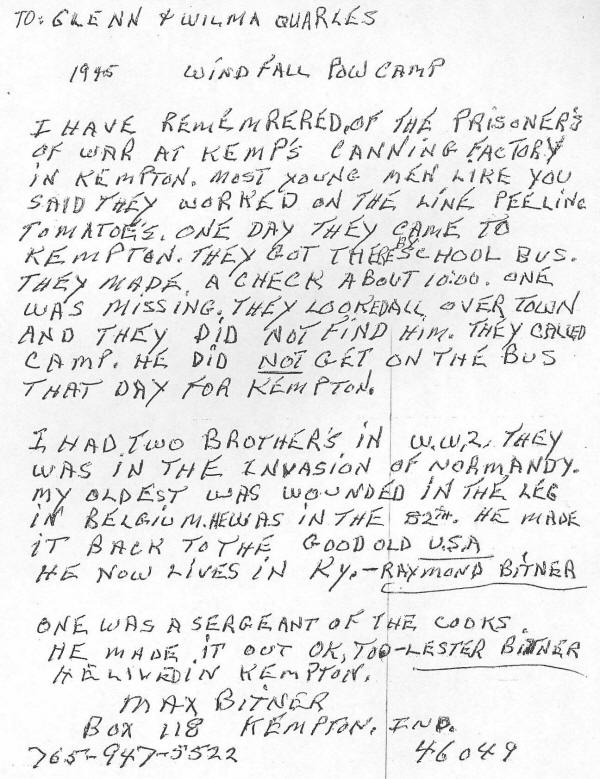 TO: GLENN & WILMA QUARLES
1945 WINDFALL POW CAMP
I HAVE REMEMRERED, OF THE PRISONER'S
OF WAR AT KEMP'S CANNING FACTORY
IN KEMPTON. MOST YOUNG MEN LIKE YOU
SAID THEY WORKED ON THE LINE PEELING
TOMATOE'S. ONE DAY THEY CAME TO
KEMPTON. THEY GOT THERE BY SCHOOL BUS.
THEY MADE A CHECK ABOUT 10:00. ONE
WAS MISSING. THEY LOOKED ALL OVER TOWN
AND THEY DID NOT FIND HIM. THEY CALLED
CAMP. HE DID NOT GET ON THE BUS
THAT DAY FOR KEMPTON.
I HAD TWO BROTHER'S IN W.W.2. THEY
WAS IN THE INVASION OF NORMANDY.
MY OLDEST WAS WOUNDED IN THE LEG
IN BELGIUM. HE WAS IN THE 82TH. HE MADE
IT BACK TO THE GOOD OLD U.S.A
HE NOW LIVES IN KY. - RAYMOND BITNER
ONE WAS A SERGEANT OF THE COOKS.
HE MADE IT OUT OK, TOO - LESTER BITNER
HE LIVED IN KEMPTON.
MAX BITNER
BOX 118 KEMPTON. IND.
765-947-5522 46049